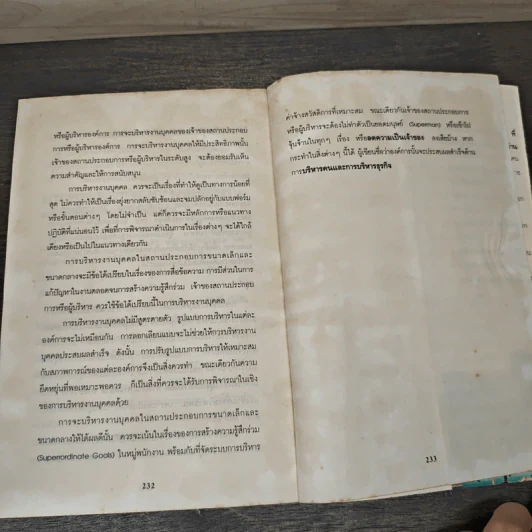 หรือผู้บริหารองค์การ การจะบริหารงานบุคคลของเจ้าของสถานประกอบ
การหรือผู้บริหารองค์การ การบริหารงานบุคคลให้มีประสิทธิภาพนั้น
เจ้าของสถานประกอบการหรือผู้บริหารในระดับสูง จะต้องยอมรับเห็น
ความสำคัญและให้การสนับสนุน
การบริหารงานบุคคล ควรจะเป็นเรื่องที่ทำให้ดูเป็นทางการน้อยที่
สุด ไม่ควรทำให้เป็นเรื่องยุ่งยากสลับซับซ้อนและจมปลักอยู่กับแบบฟอร์ม
หรือขั้นตอนต่างๆ โดยไม่จำเป็น แต่ก็ควรจะมีหลักการหรือแนวทาง
ปฏิบัติที่แน่นอนไว้ เพื่อที่การพิจารณาดำเนินการในเรื่องต่างๆ จะได้ใกล้
เคียงหรือเป็นไปในแนวทางเดียวกัน
การบริหารงานบุคคลในสถานประกอบการขนาดเล็กและ
ขนาดกลางจะมีข้อได้เปรียบในเรื่องของการสื่อข้อความ การมีส่วนในการ
แก้ปัญหาในงานตลอดจนการสร้างความรู้สึกร่วม เจ้าของสถานประกอบ
การหรือผู้บริหาร ควรใช้ข้อได้เปรียบนี้ในการบริหารงานบุคคล
การบริหารงานบุคคลไม่มีสูตรตายตัว รูปแบบการบริหารในแต่ละ
องค์การจะไม่เหมือนกัน การลอกเลียนแบบจะไม่ช่วยให้การบริหารงาน
บุคคลประสบผลสำเร็จ ดังนั้น การปรับรูปแบบการบริหารให้เหมาะสม
กับสภาพการณ์ของแต่ละองค์การจึงเป็นสิ่งควรทำ ขณะเดียวกันความ
ยืดหยุ่นที่พอเหมาะพอควร ก็เป็นสิ่งที่ควรจะได้รับการพิจารณาในเชิง
ของการบริหารงานบุคคลด้วย
การจะบริหารงานบุคคลในสถานประกอบการขนาดเล็กและ
ขนาดกลางให้ได้ผลดีนั้น ควรจะเน้นในเรื่องของการสร้างความรู้สึกร่วม
(Superrordinate Goals) ในหมู่พนักงาน พร้อมกับที่จัดระบบการบริหาร
232
ค่าจ้างสวัสดิการที่เหมาะสม ขณะเดียวกันเจ้าของสถานประกอบการ
หรือผู้บริหารจะต้องไม่ทำตัวเป็นยอดมนุษย์ (Superman) หรือเข้าไป
จุ้นจ้านในทุกๆ เรื่อง หรือลดความเป็นเจ้าของ ลงเสียบ้าง หาก
กระทำในสิ่งต่างๆ นี้ได้ ผู้เขียนเชื่อว่าองค์การนั้นจะประสบผลสำเร็จด้าน
การบริหารคนและการบริหารธุรกิจ
233